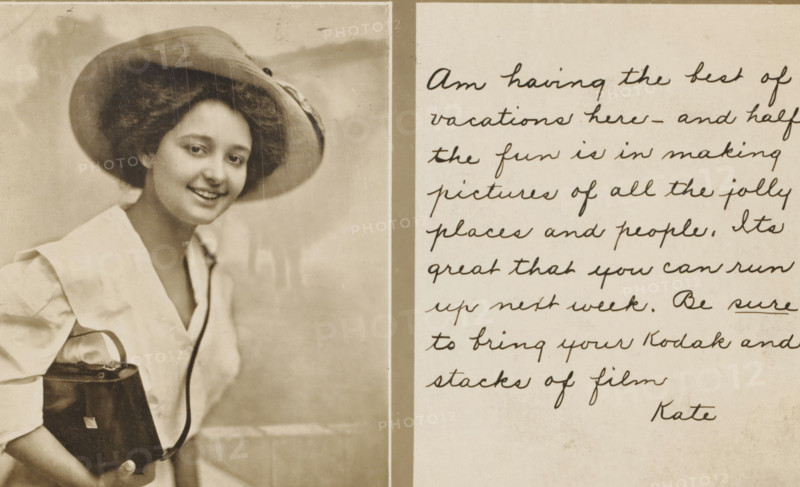 Am having the best of
vacations here – and half
the fun is in making
pictures of all the jolly
places and people. Its
great that you can run
up next week. Be sure
to bring your Kodak and
stacks of film
Kate
PHOTO12